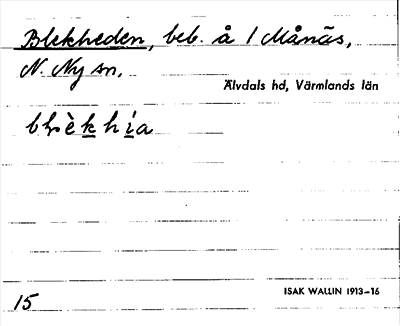 Blekheden, beb. å 1 Månäs,
N. Ny sn.
Älvdals hd, Värmlands län
15
ISAK WALLIN 1913-16